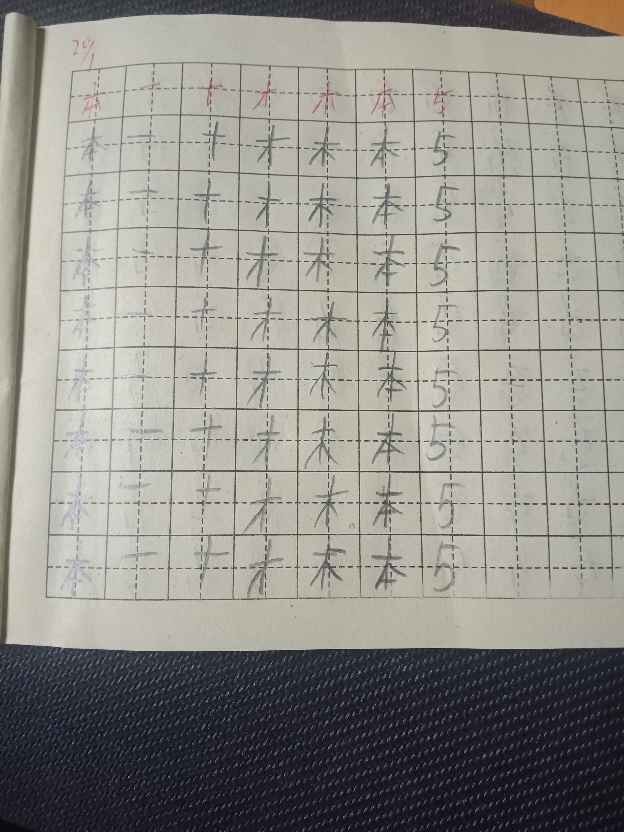 20/1
本 一 十 才 木 本 5
本 一 十 才 木 本 5
本 一 十 才 木 本 5
本 一 十 才 木 本 5
本 一 十 才 木 本 5
本 一 十 才 木 本 5
本 一 十 才 木 本 5
本 一 十 才 木 本 5
本 一 十 才 木 本 5